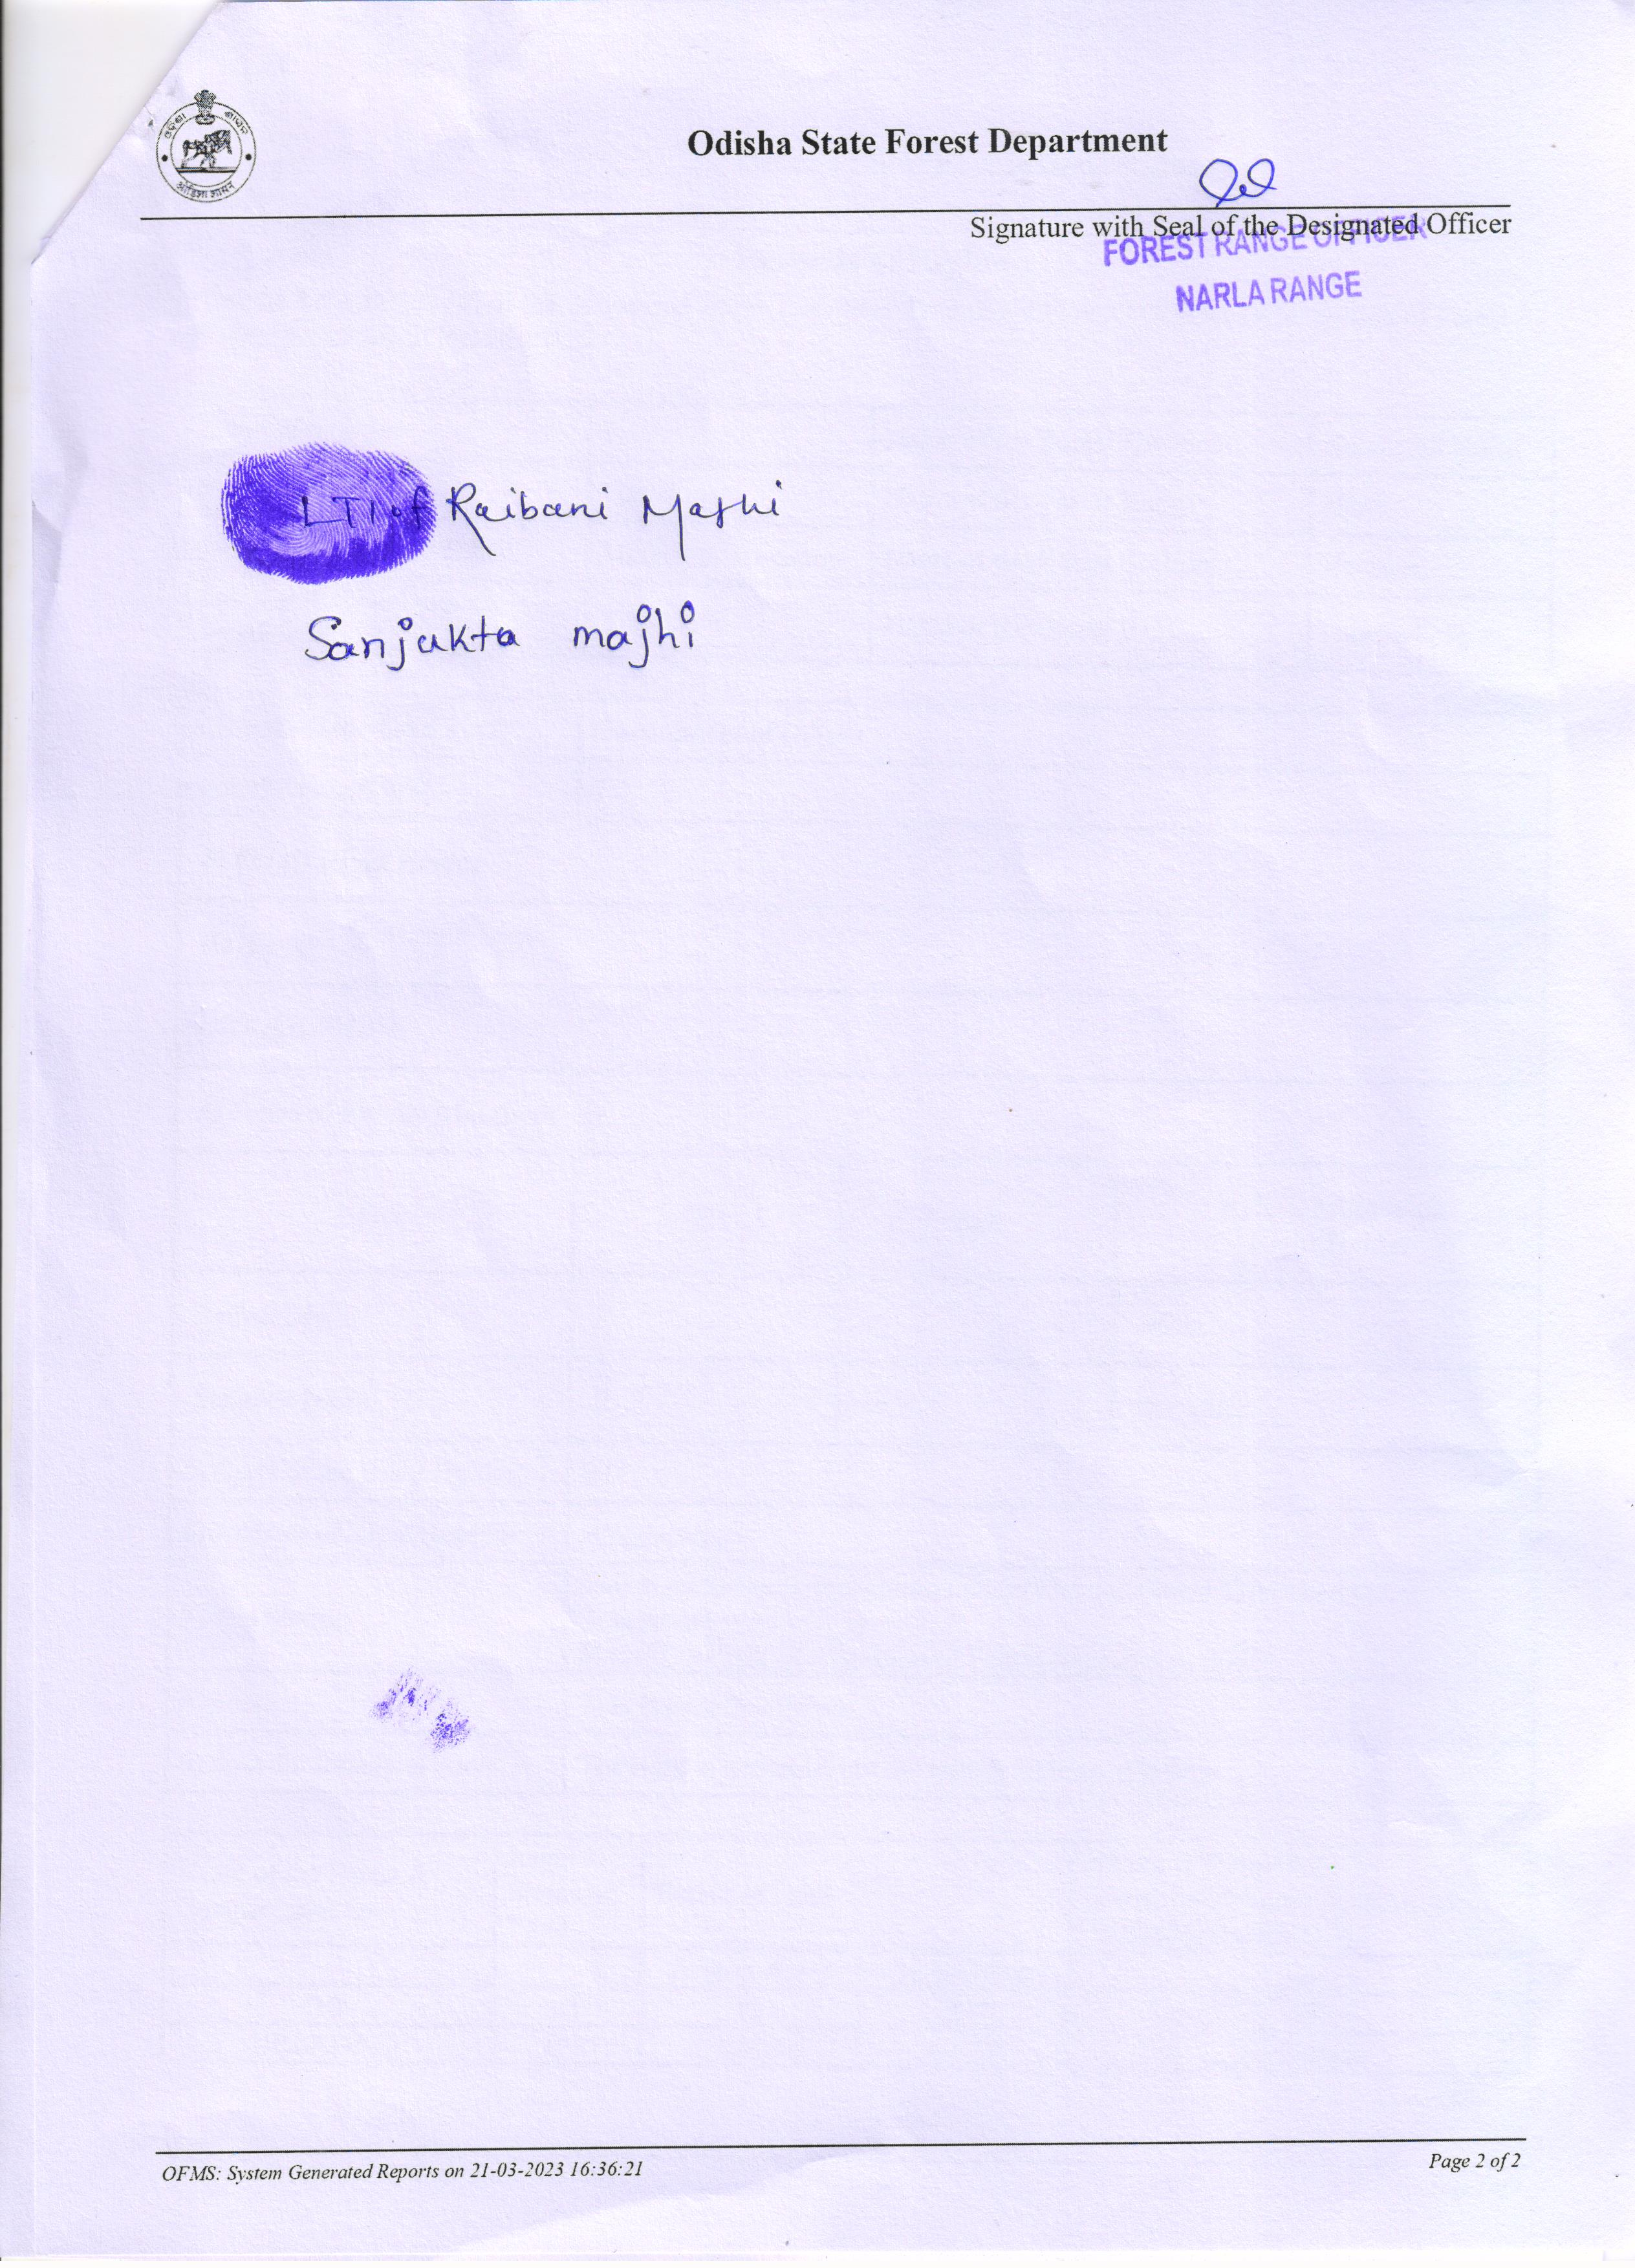 ଓଡ଼ିଶା ଶାସନ
ओड़िशा शासन
Odisha State Forest Department
Signature with Seal of the Designated Officer
FOREST RANGE OFFICER
NARLA RANGE
LTI of Raibani Majhi
Sanjukta majhi
OFMS: System Generated Reports on 21-03-2023 16:36:21
Page 2 of 2